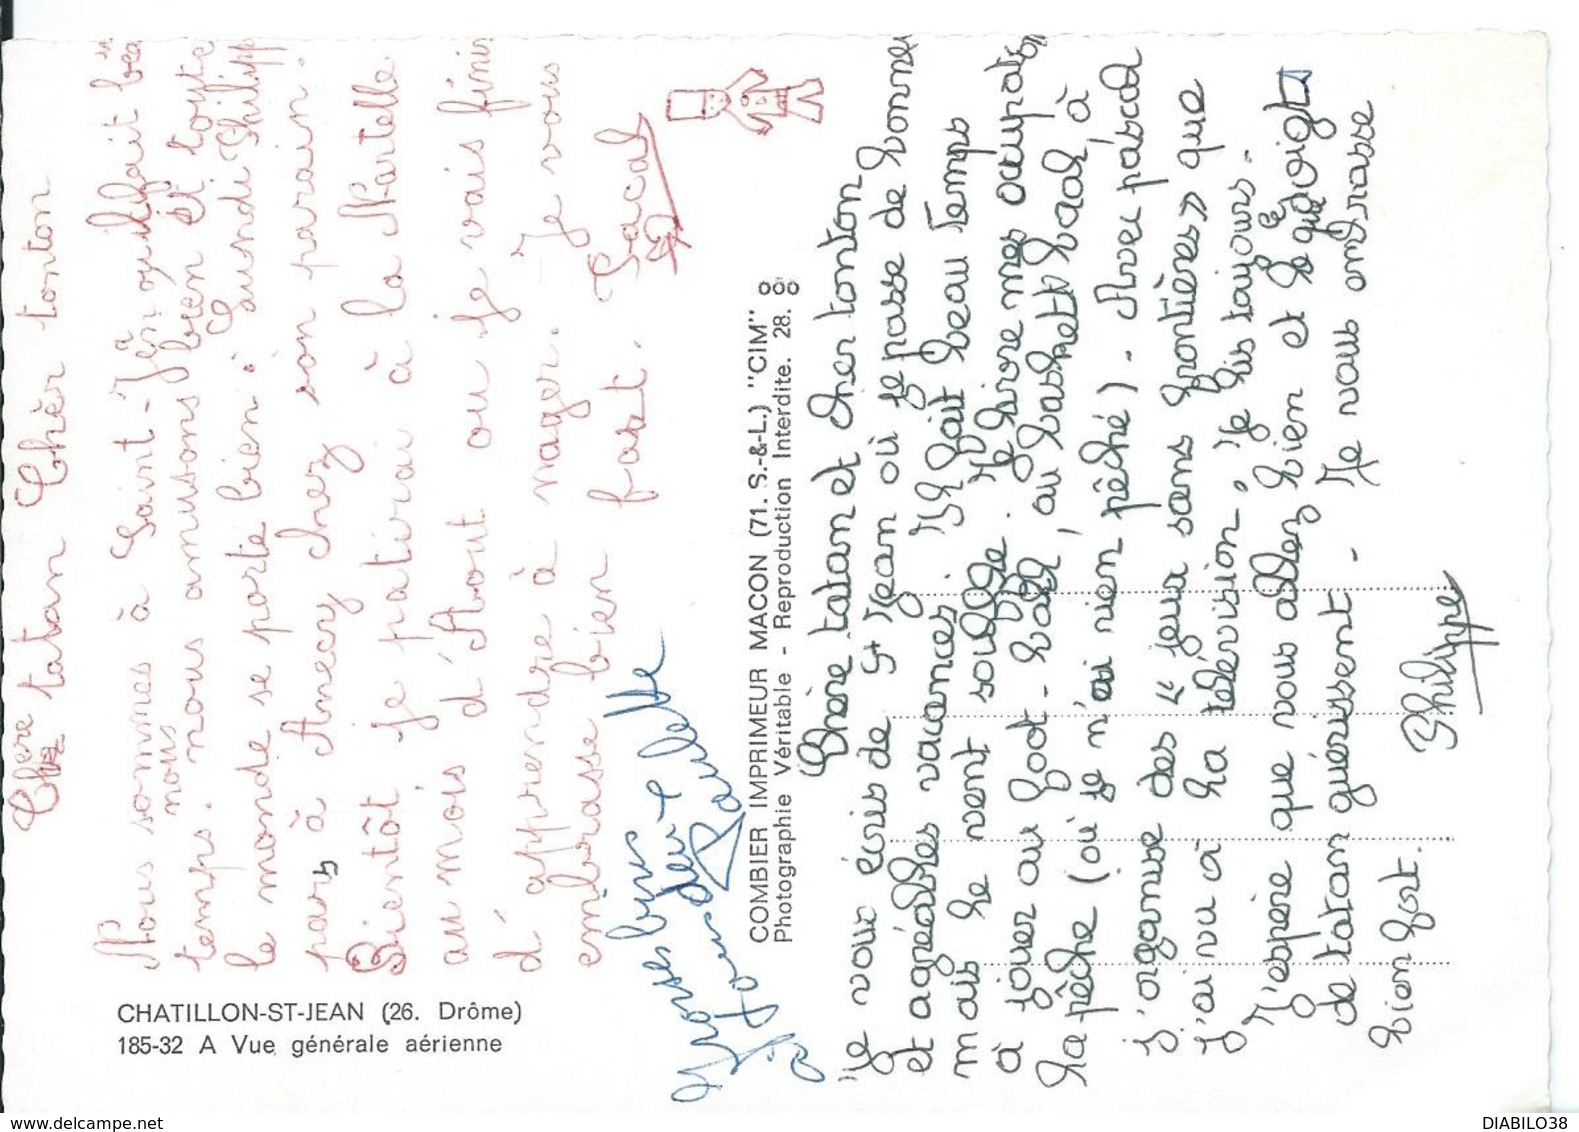 Chère tatan Chèr tonton
Nous sommes à Saint-Jean ou il fait beau
temps. nous nous amusons bien et toute
le monde se porte bien : Laundi Philipp
pars à Anecy chez son parain.
Bientôt je patirai à la Nartelle
au mois d'Aout ou je vais finir
d'apprendre à nager. Je vous
embrasse bien fort. Pascal
Grosses bises
à tous deux
Paulette
CHATILLON-ST-JEAN (26. Drôme)
185-32 A Vue générale aérienne
COMBIER IMPRIMEUR MACON (71. S.-&-L.) "CIM"
Photographie Véritable - Reproduction Interdite. 28.
Chère tatan et cher tonton
Je vous écris de St Jean où je passe de bonnes
et agréables vacances. Il fait beau temps
mais le vent souffle. Je livre mes occupations
à jouer au foot-ball, au basket ball à
la pêche (où je n'ai rien pêché). Avec pascal
j'organise des "jeux sans frontières" que
j'ai vu à la télévision. Je lis toujours.
J'espère que vous allez bien et que le doigt
de tatan guérissent. Je vous embrasse
bien fort.
Philippe
DIABILO38
www.delcampe.net